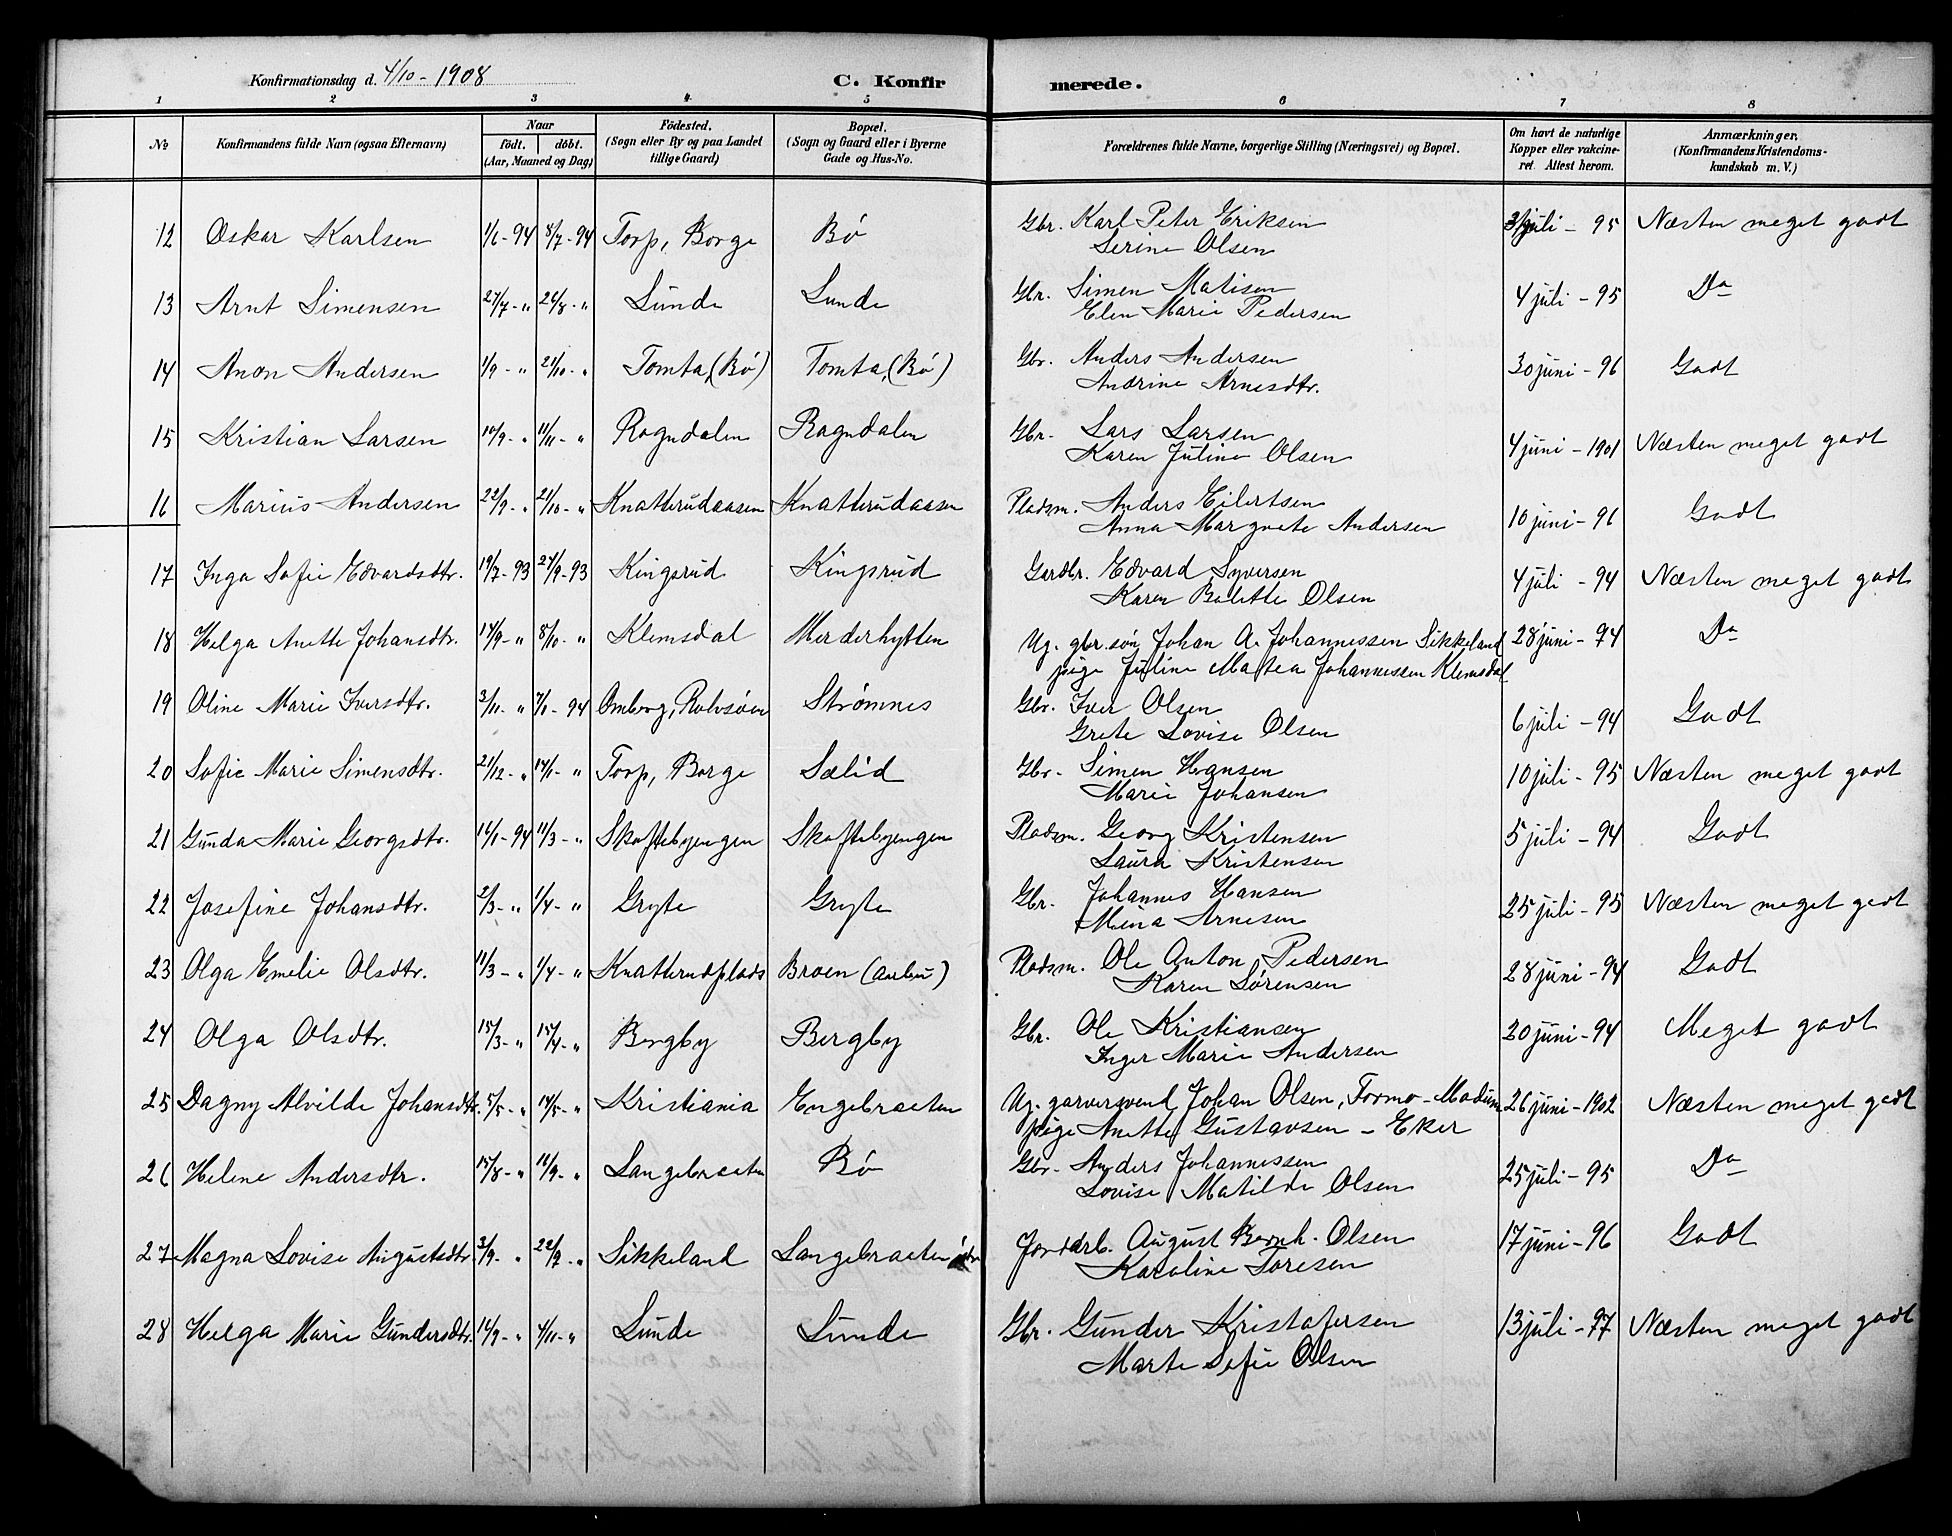 Konfirmationsdag d. 4/10 - 1908
C. Konfirmerede.
1 2 3 4 5 6 7 8
No
Konfirmandens fulde Navn (ogsaa Efternavn)
Naar
födt. döbt.
(Aar, Maaned og Dag)
Födested.
(Sogn eller By og paa Landet
tillige Gaard)
Bopæl.
(Sogn og Gaard eller i Byerne
Gade og Hus-No.
Forældrenes fulde Navne, borgerlige Stilling (Næringsvei) og Bopæl.
Om havt de naturlige
Kopper eller vakcine-
ret. Attest herom.
Anmærkninger.
(Konfirmandens Kristendoms-
kundskab m. V.)
12 Oskar Karlsen 1/6 - 94 8/7 - 94 Torp, Borge Bö Gbr. Karl Peter Eriksen juli - 95 Næsten meget godt
Serine Olsen
13 Arnt Simensen 27/7 - " 26/8 - " Lunde Lunde Gbr. Simen Matisen 4 juli - 95 Do
Elen Marie Pedersen
14 Anon Andersen 1/9 - " 21/10 - " Tomta, (Bö) Tomta, (Bö) Gbr. Anders Andersen 30 juni - 96 Godt
Andrine Arnesdtr.
15 Kristian Larsen 10/9 - " 11/11 - " Rogndalen Rogndalen Gbr. Lars Larsen 4 juni - 1901 Næsten meget godt
Karen Juline Olsen
16 Marius Andersen 22/9 - " 21/10 - " Knatterudaasen Knatterudaasen Pladsm. Anders Eilertsen 10 juni - 96 Godt
Anna Margrete Andersen
17 Inga Sofie Edvardsdtr. 19/7 - 93 24/9 - 93 Kingsrud Kingsrud Gardbr. Edvard Syversen 4 juli - 94 Næsten meget godt
Karen Bolette Olsen
18 Helga Anette Johansdtr. 14/9 - " 8/10 - " Klemsdal Merderhytten Ug. gbr. sön Johan A. Johannessen Sikkeland 28 juni - 94 Do
pige Juline Matea Johannessen Klemsdal
19 Oline Marie Iversdtr. 3/11 - " 7/1 - 94 Omberg, Rolvsöen Strømnes Gbr. Iver Olsen 6 juli - 94 Godt
Grete Lovise Olsen
20 Sofie Marie Simensdtr. 21/12 - " 14/1 - " Torp, Borge Sælid Gbr. Simen Hansen 10 juli - 95 Næsten meget godt
Marie Johansen
21 Gunda Marie Georgsdtr. 16/1 - 94 11/3 - " Skoftebyengen Skoftebyengen Pladsm. Georg Kristensen 5 juli - 94 Godt
Laura Kristensen
22 Josefine Johansdtr. 2/3 - " 1/4 - " Gryte Gryte Gbr. Johannes Hansen 25 juli - 95 Næsten meget godt
Mina Arnesen
23 Olga Emelie Olsdtr. 11/3 - " 1/4 - " Knatterudplads Broen (Aarbu) Pladsm. Ole Anton Pedersen 28 juni - 94 Godt
Karen Sörensen
24 Olga Olsdtr. 15/3 - " 15/4 - " Bergby Bergby Gbr. Ole Kristiansen 20 juni - 94 Meget godt
Inger Marie Andersen
25 Dagny Alvilde Johansdtr. 5/5 - " 14/5 - " Kristiania Engebraaten Ug. garversvend Johan Olsen, Formo - Modum 26 juni - 1902 Næsten meget godt
pige Anette Gustavsen - Eker
26 Helene Andersdtr. 15/8 - " 16/9 - " Langebraaten Bö Gbr. Anders Johannessen 25 juli - 95 Do
Lovise Matilde Olsen
27 Magna Lovise Augustsdtr. 2/9 - " 22/9 - " Sikkeland Langebraaten Jordarb. August Bernh. Olsen 17 juni - 96 Godt
Karoline Toresen
28 Helga Marie Gundersdtr. 16/9 - " 4/11 - " Lunde Lunde Gbr. Gunder Kristofersen 13 juli - 97 Næsten meget godt
Marte Sofie Olsen